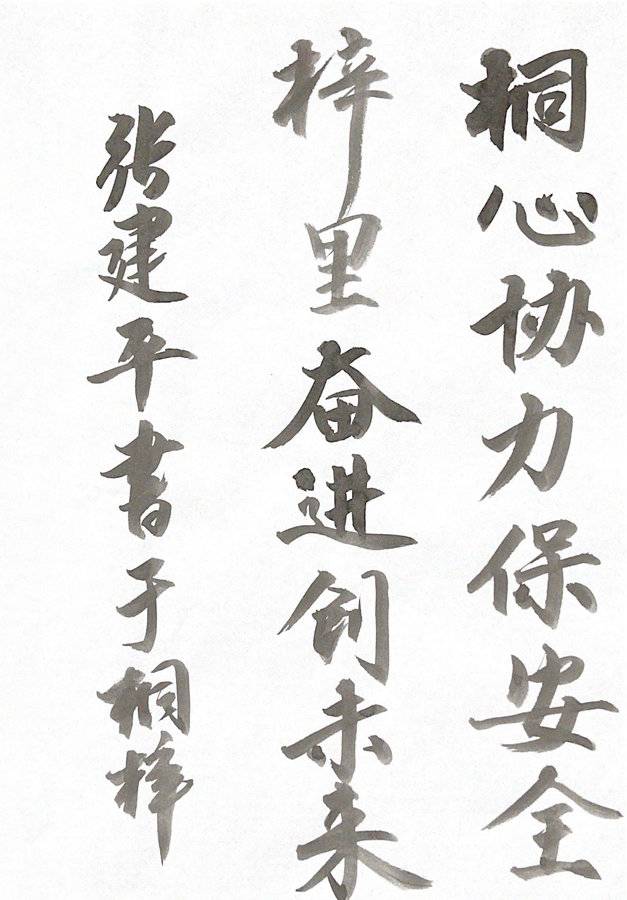 桐心协力保安全
梓里奋进创未来
张建平书于桐梓